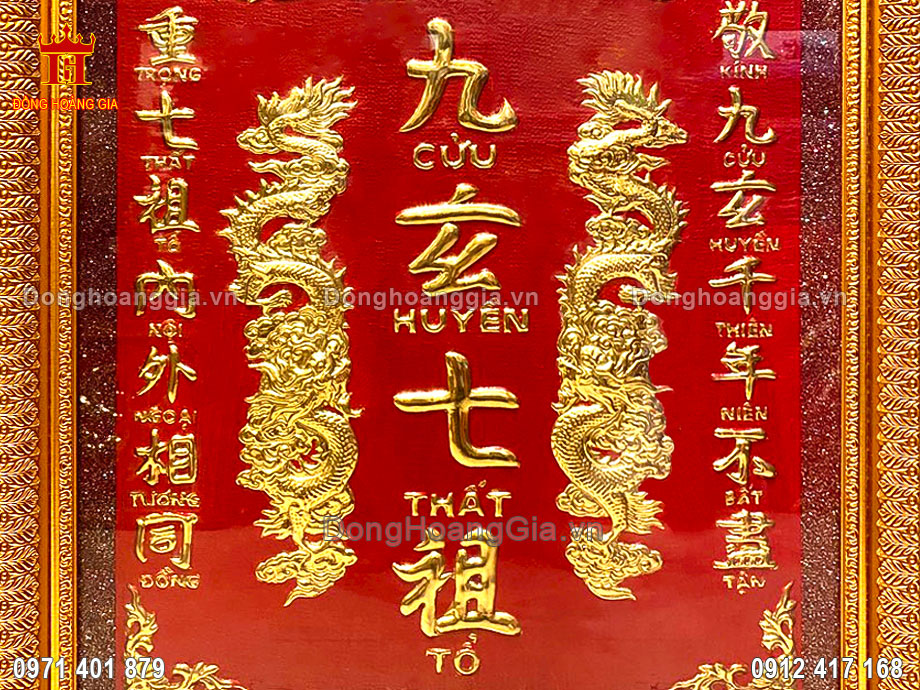 ĐÔNG HOÀNG GIA
敬
KÍNH
九
CỬU
玄
HUYỀN
千
THIÊN
年
NIÊN
不
BẤT
盡
TẬN
九
CỬU
玄
HUYỀN
七
THẤT
祖
TỔ
重
TRỌNG
七
THẤT
祖
TỔ
內
NỘI
外
NGOẠI
相
TƯƠNG
同
ĐỒNG
Donghoanggia.vn
Donghoanggia.vn
Donghoanggia.vn
DongHoangGia.vn
0971 401 879
0912 417 168